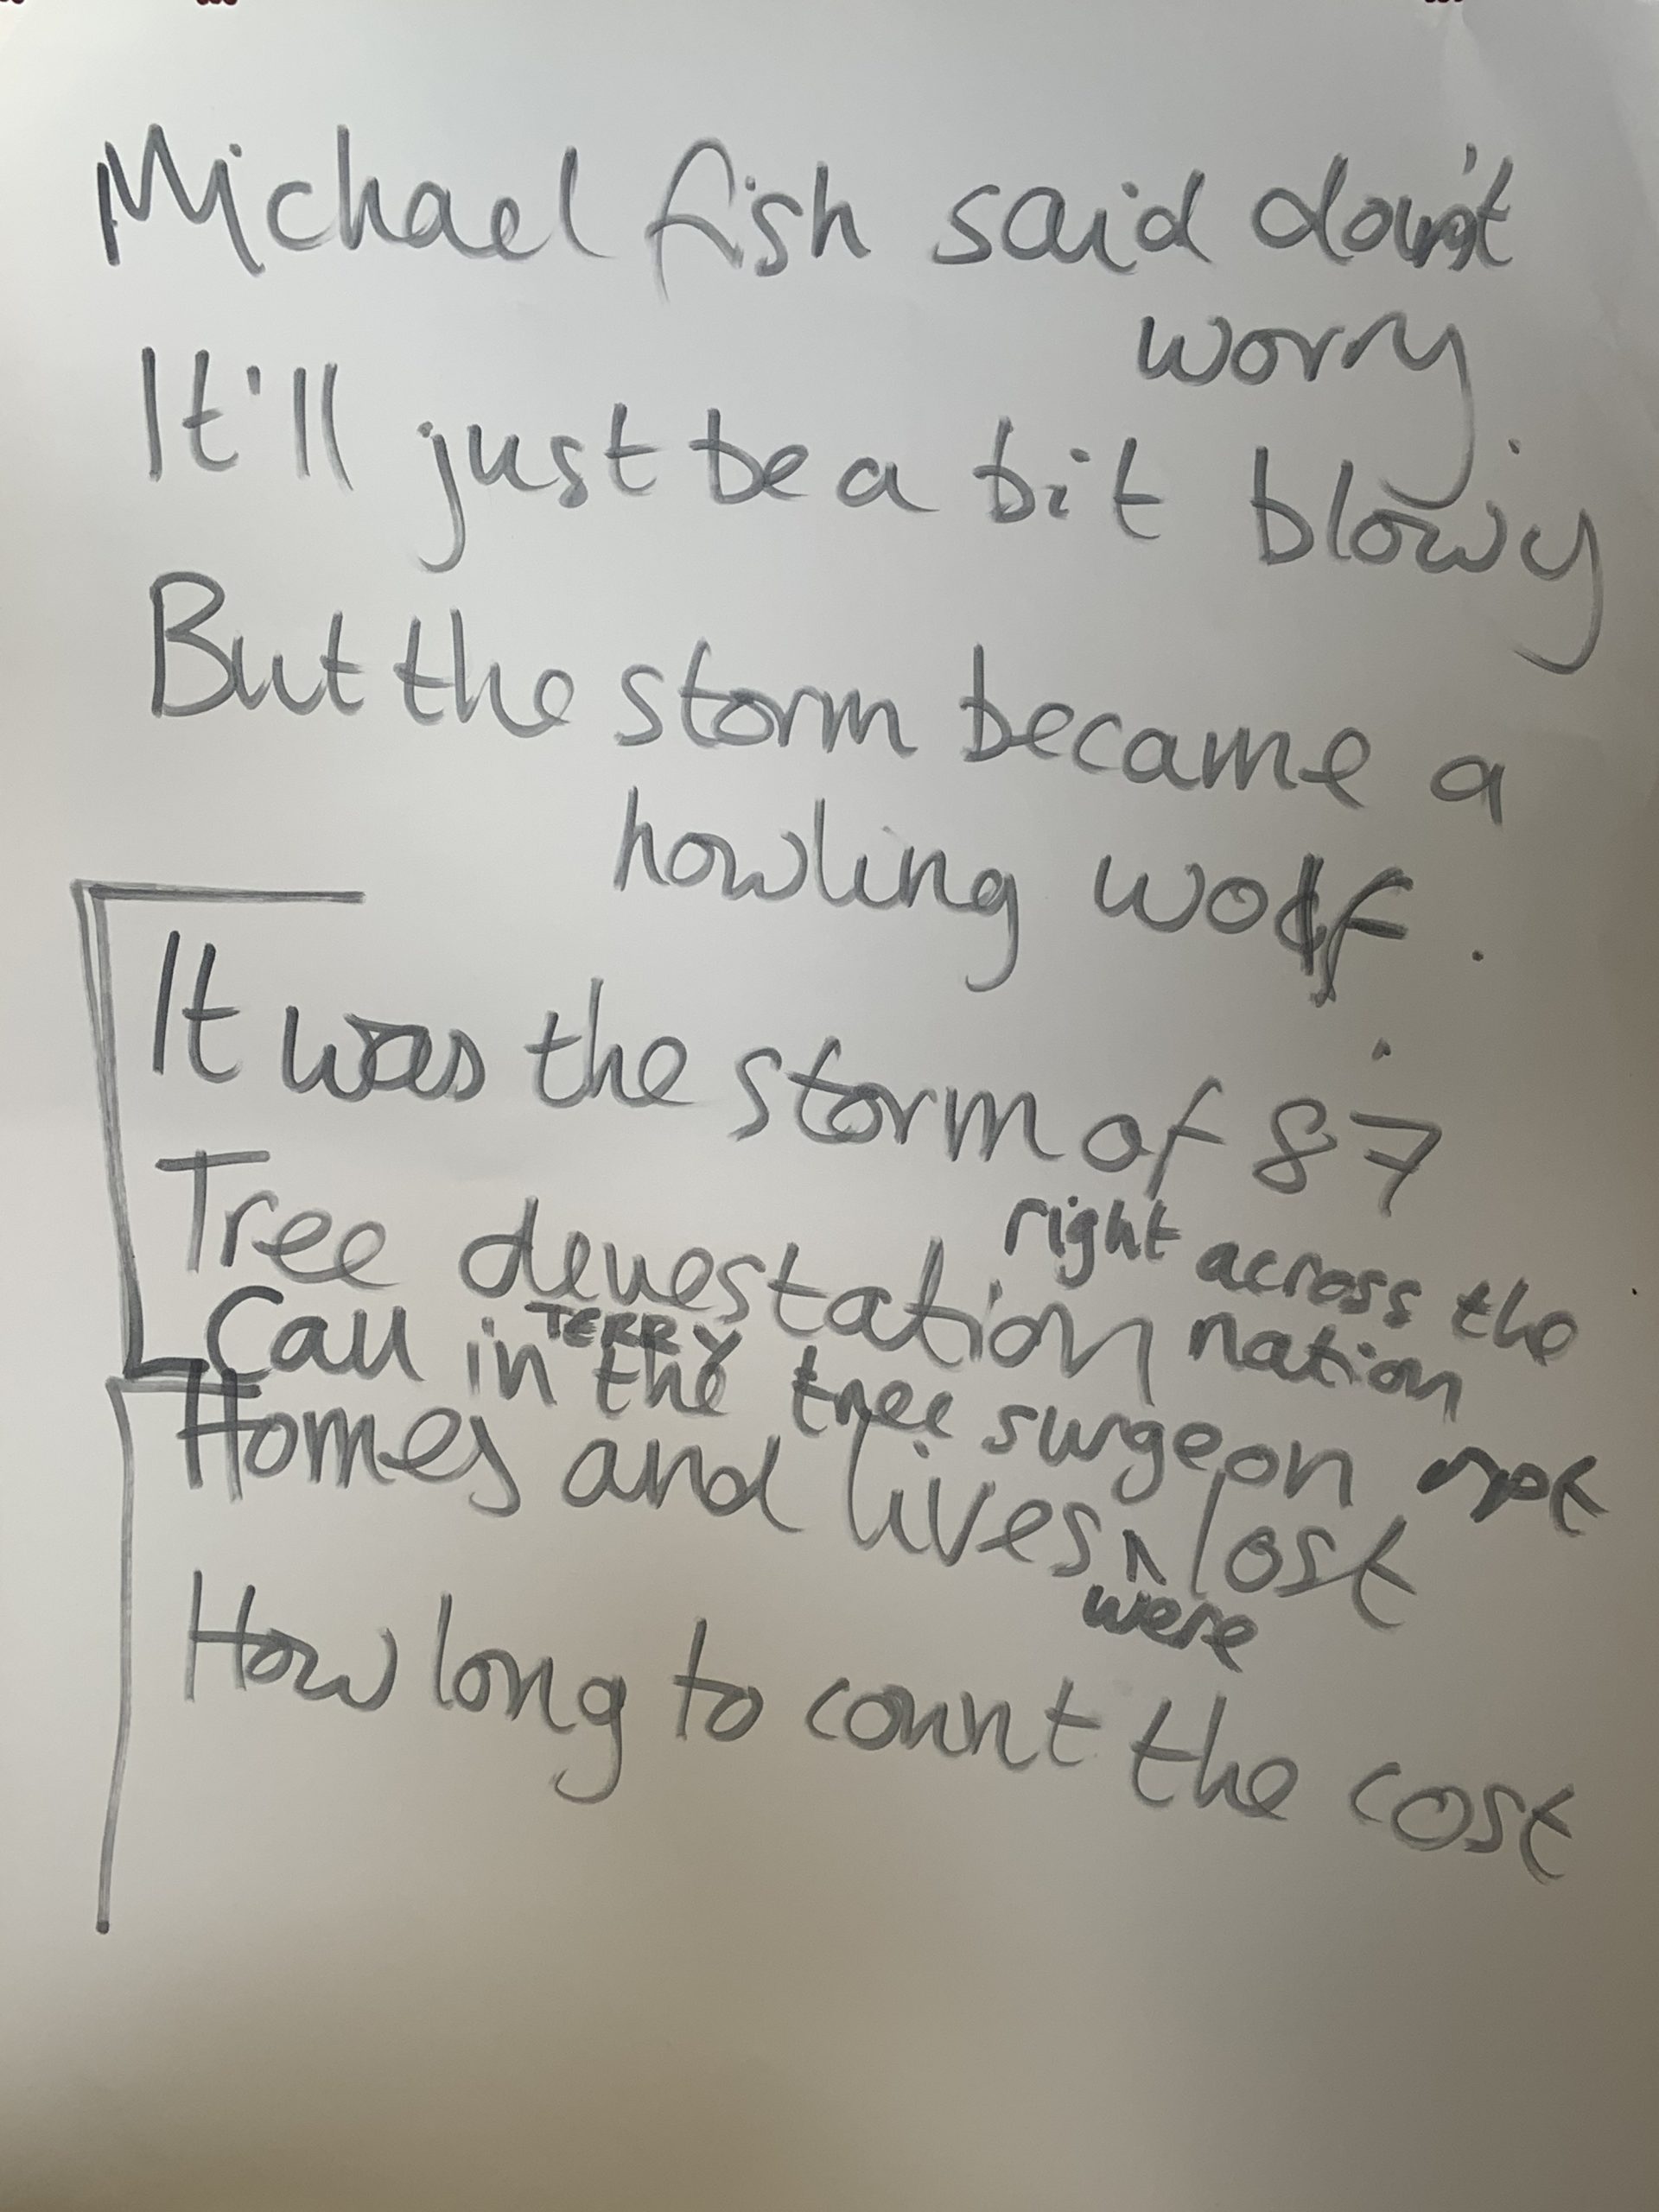 Michael fish said don't
worry
It'll just be a bit blowy
But the storm became a
howling wolf.
It was the storm of 87
Tree devestation right across the
nation
Call in TERRY the tree surgeon
Homes and lives were lost
How long to count the cost